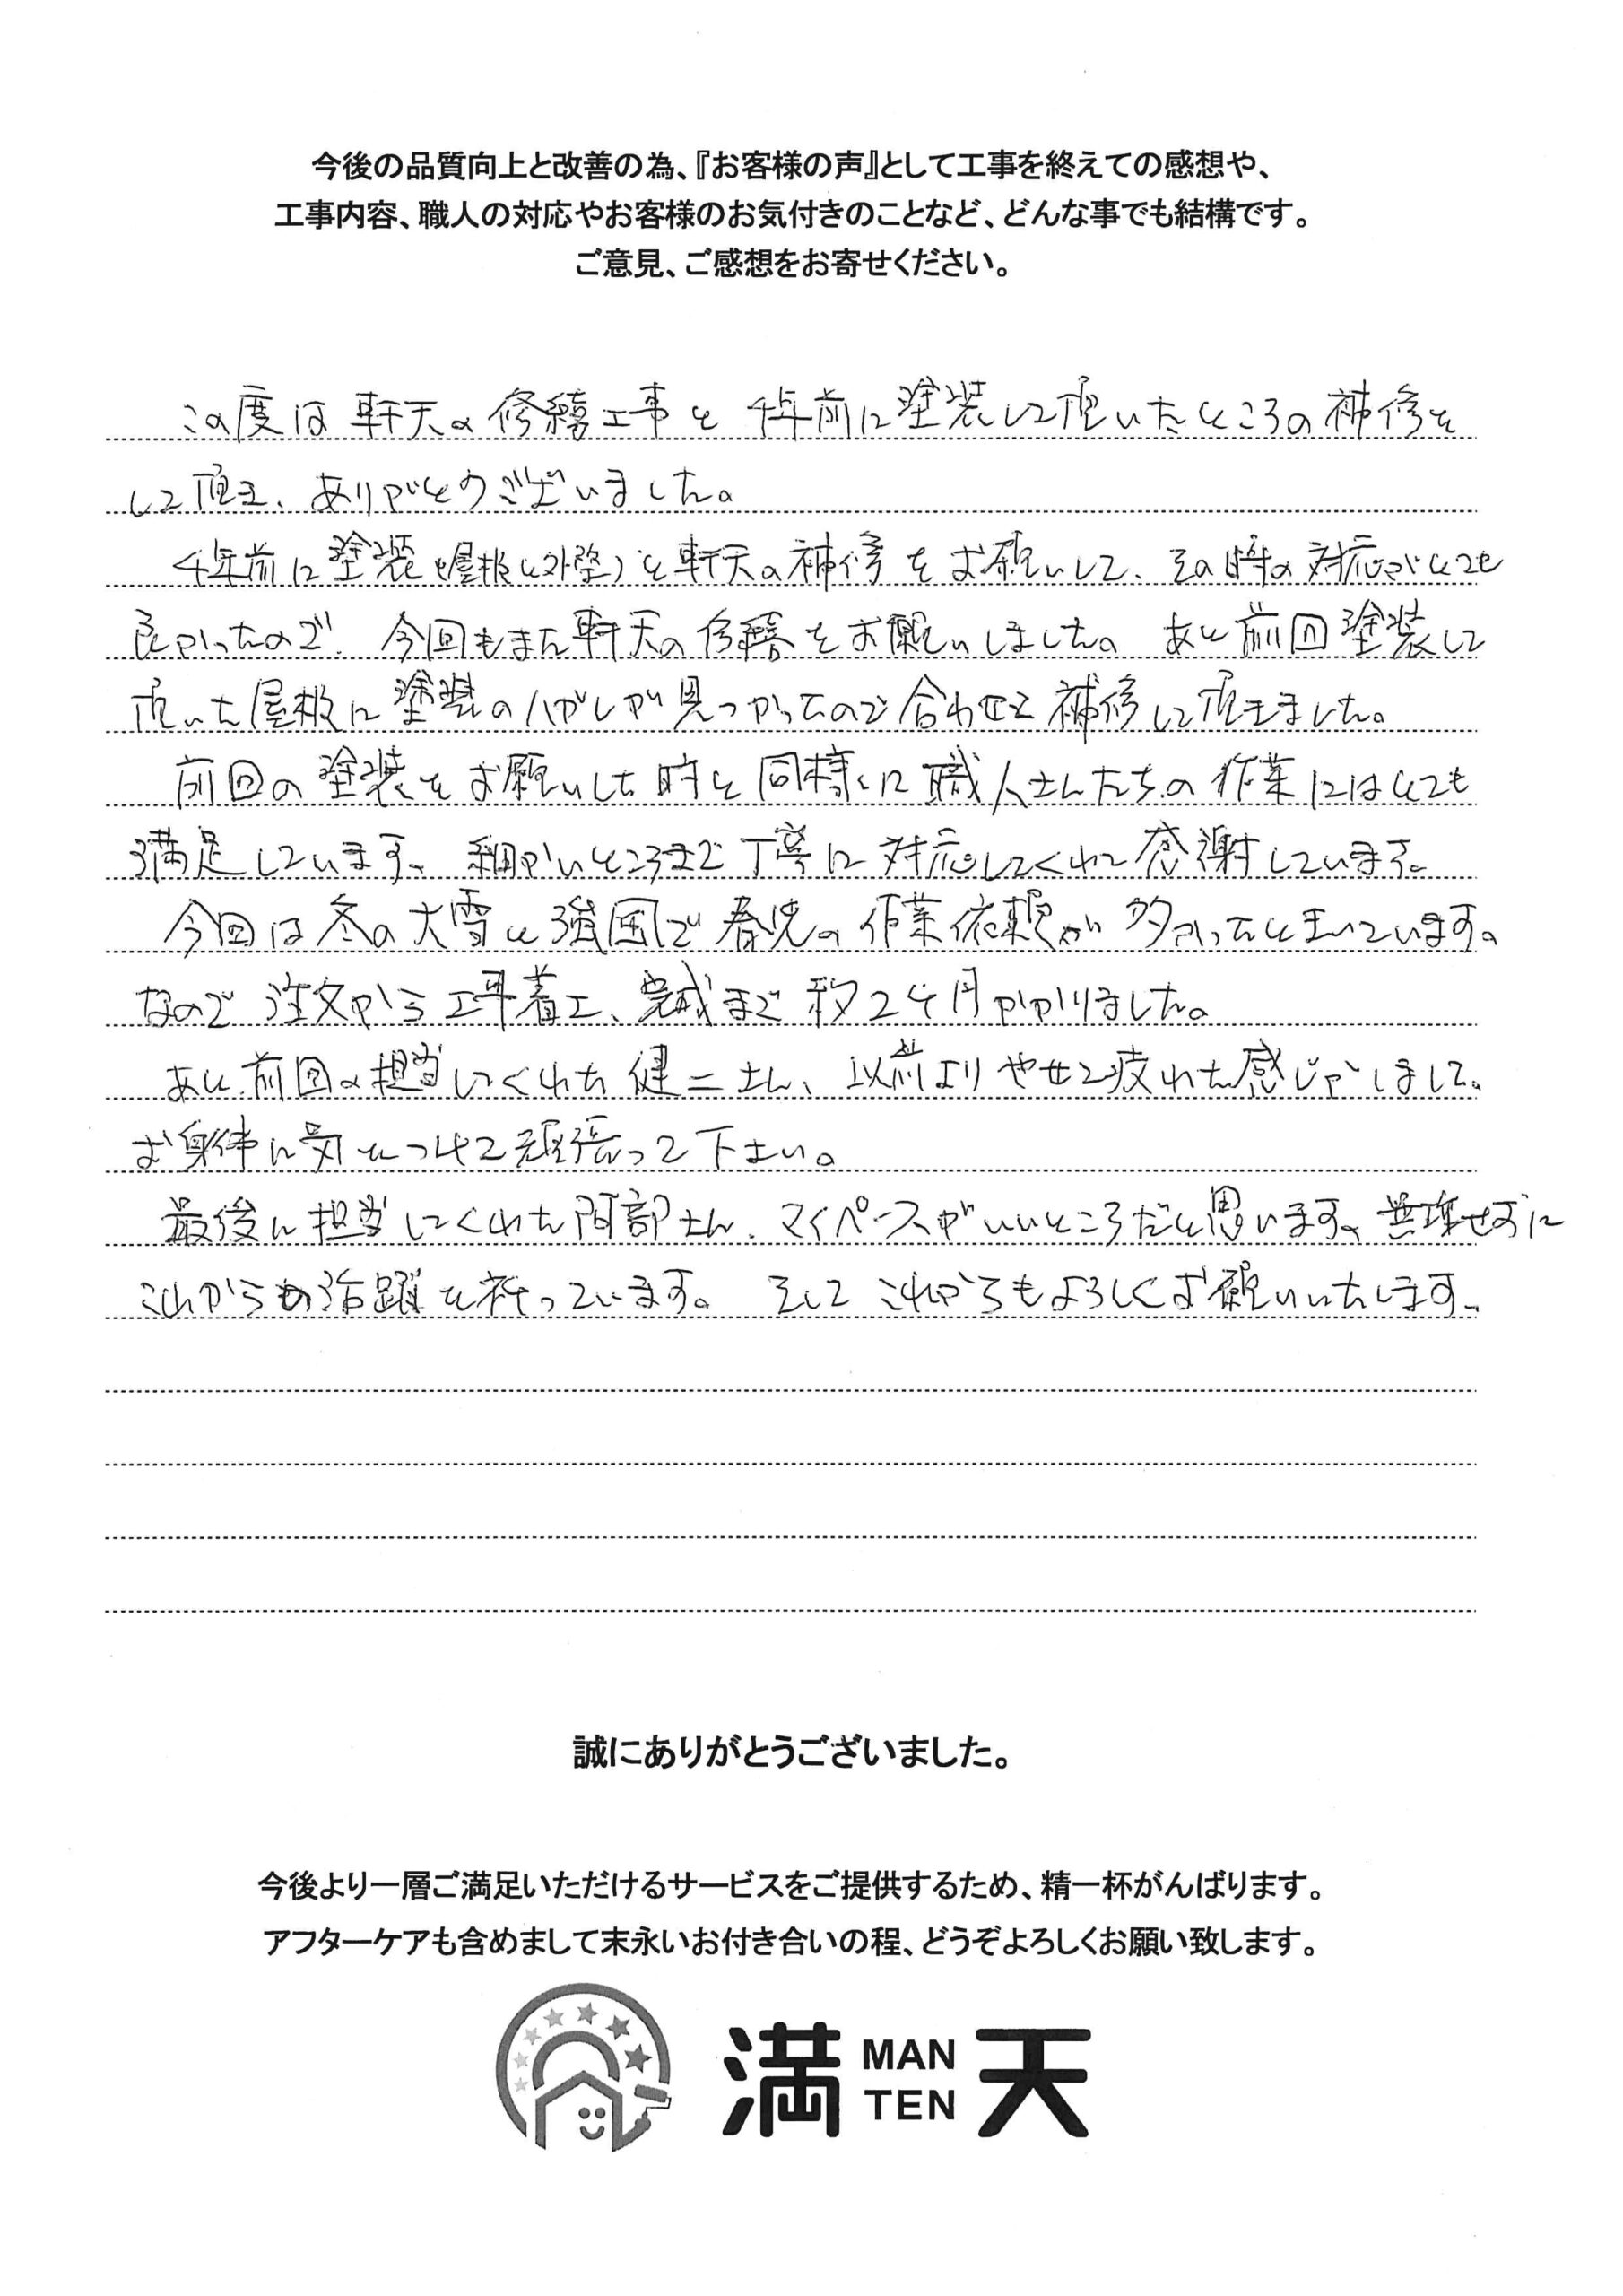 今後の品質向上と改善の為、『お客様の声』として工事を終えての感想や、
工事内容、職人の対応やお客様のお気付きのことなど、どんな事でも結構です。
ご意見、ご感想をお寄せください。
この度は軒天の修繕工事と4年前に塗装して頂いたところの補修を
して頂き、ありがとうございました。
4年前に塗装(屋根と外壁)と軒天の補修をお願いして、その時の対応がとても
良かったので、今回もまた軒天の修繕をお願いしました。あと前回塗装して
頂いた屋根に塗装のハガレが見つかったので合わせて補修して頂きました。
前回の塗装をお願いした時と同様に職人さんたちの作業にはとても
満足しています。細かいところまで丁寧に対応してくれて感謝しています。
今回は冬の大雪と強風で春先の作業依頼が多かったときいています。
なので注文から工事着工、完成まで約2ヶ月かかりました。
あと前回の担当してくれた健二さん、以前よりやせて疲れた感じがしまして。
お身体に気をつけて頑張って下さい。
最後に担当してくれた阿部さん、マイペースがいいところだと思います。無理せずに
これからの活躍を祈っています。 そしてこれからもよろしくお願いいたします。
誠にありがとうございました。
今後より一層ご満足いただけるサービスをご提供するため、精一杯がんばります。
アフターケアも含めまして末永いお付き合いの程、どうぞよろしくお願い致します。
満 MAN TEN 天